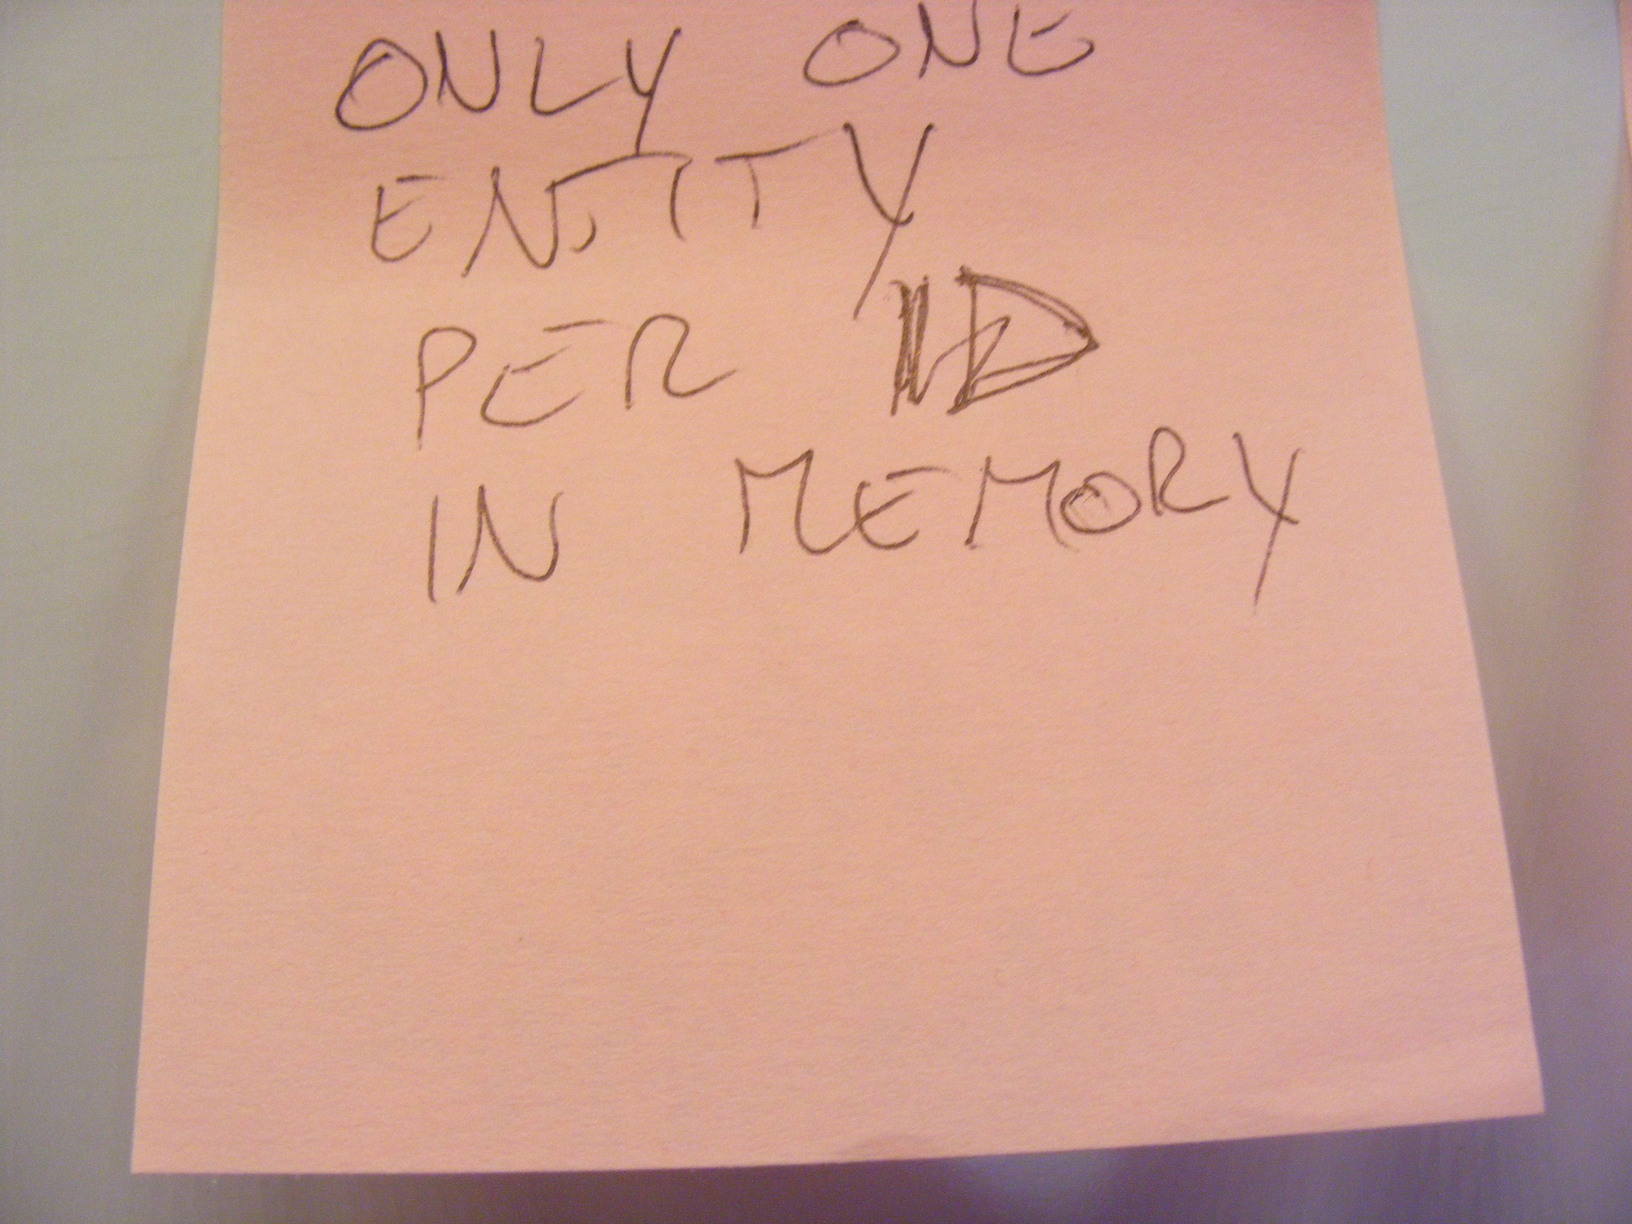 ONLY ONE
ENTITY
PER ID
IN MEMORY